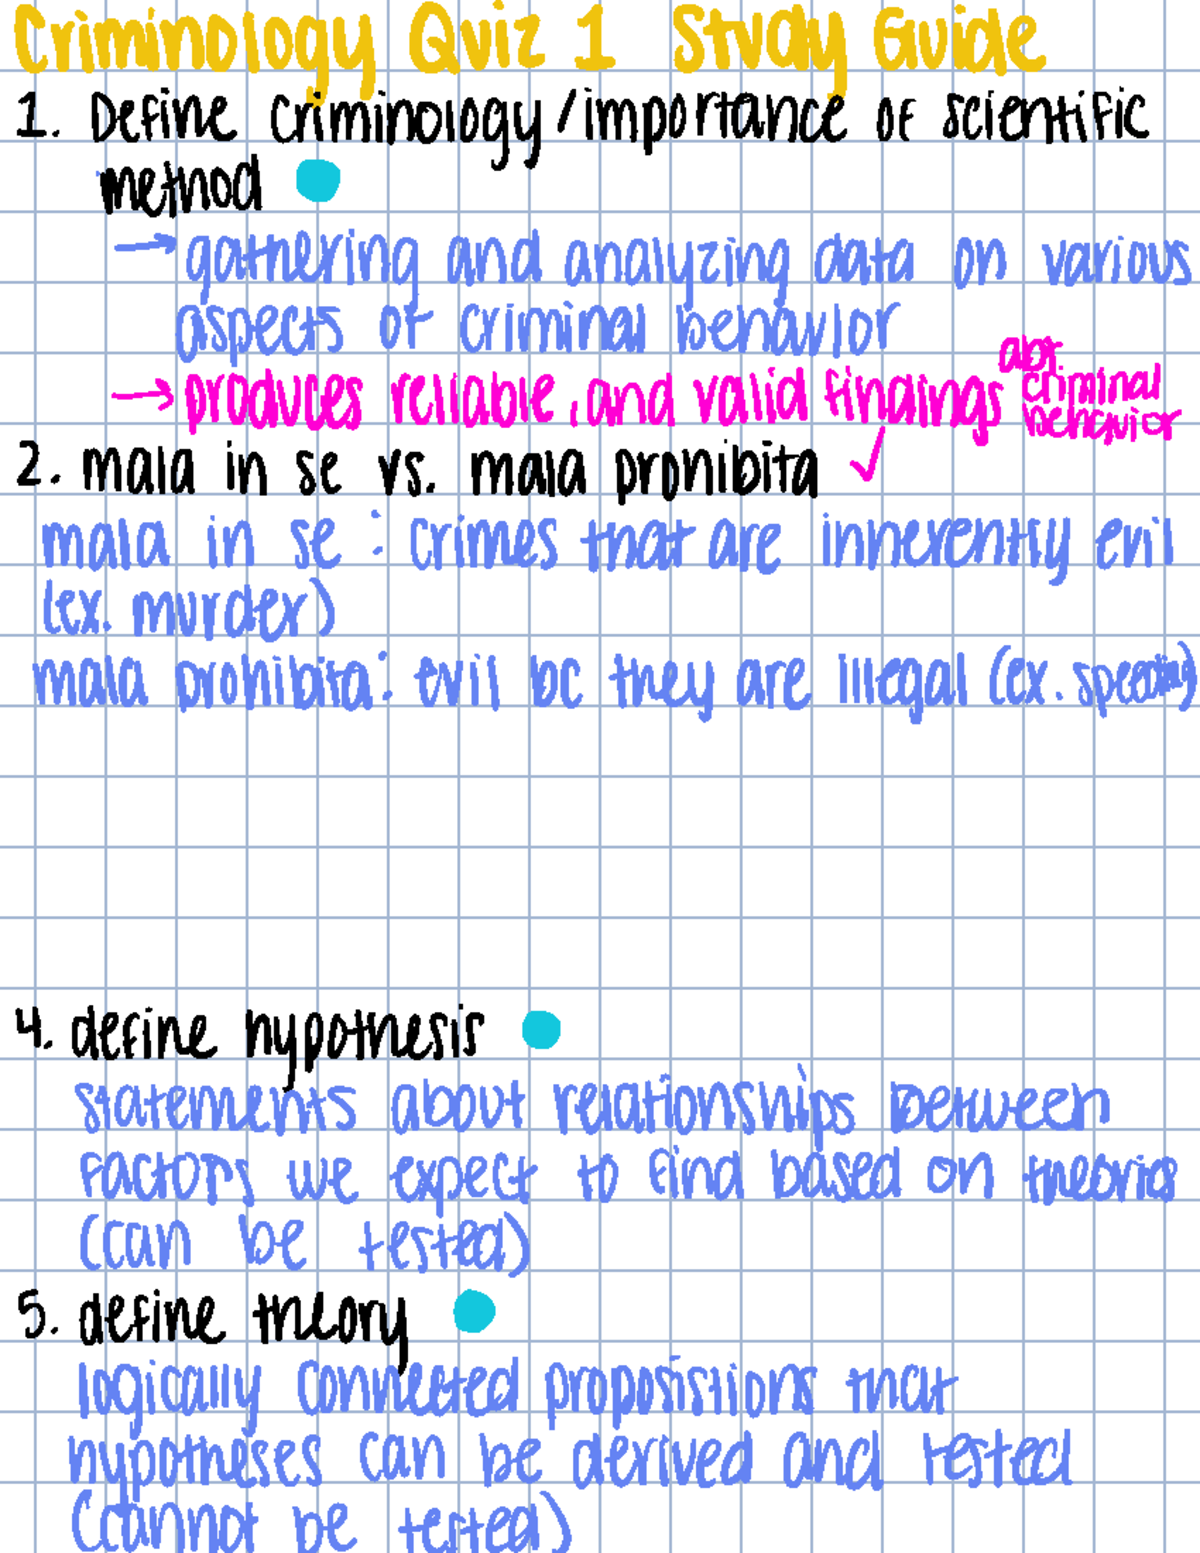 Criminology Quiz 1 Study Guide
1. Define criminology/importance of scientific
method
→ gathering and analyzing data on various
aspects of criminal behavior
→ produces reliable, and valid findings abt criminal behavior
2. mala in se vs. mala prohibita ✓
mala in se : crimes that are inherently evil
(ex. murder)
mala prohibita: evil bc they are illegal (ex. speeding)
4. define hypothesis
statements about relationships between
factors we expect to find based on theories
(can be tested)
5. define theory
logically connected proposistions that
hypotheses can be derived and tested
(cannot be tested)